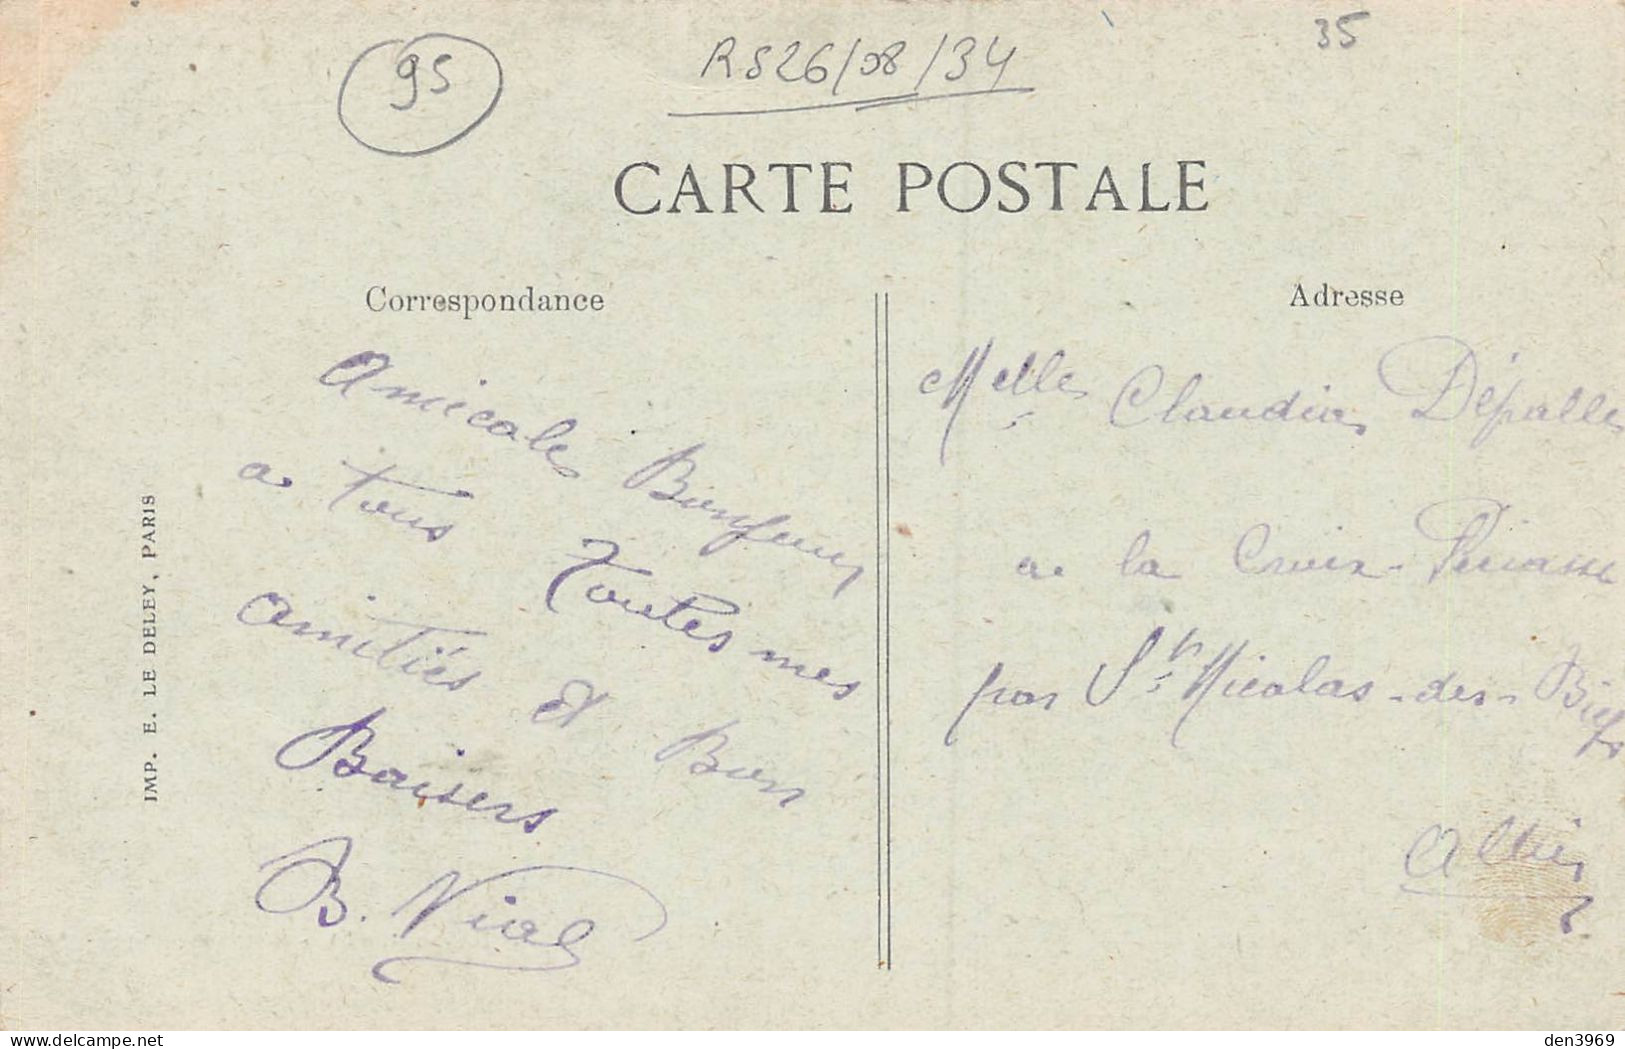 95
RS26/08/34
35
CARTE POSTALE
Correspondance
Amicales Bonjour
a tous Toutes mes
amitiés et Bon
Baisers
B. Vial
Adresse
Melle Claudia Dépalle
a la Croix-
par St Nicolas-des-Biefs
Allier
IMP. E. LE DELEY, PARIS
delcampe.net
den3969